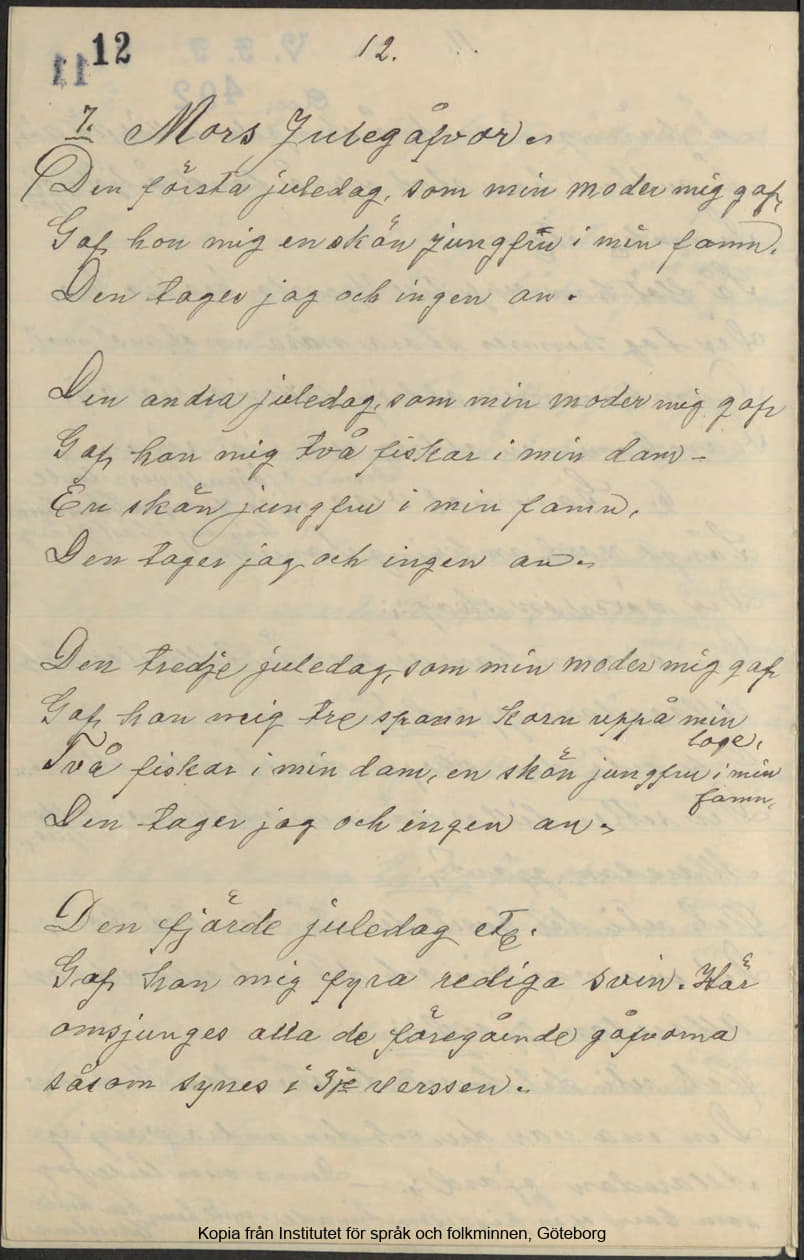 12
11
12.
7. Mors Julegåfvor.
Den första juledag, som min moder mig gaf,
Gaf hon mig en skön jungfru i min famn.
Den tager jag och ingen an.
Den andra juledag, som min moder mig gaf
Gaf hon mig två fiskar i min dam –
En skön jungfru i min famn,
Den tager jag och ingen an.
Den tredje juledag, som min moder mig gaf
Gaf hon mig tre spann korn uppå min
loge,
Två fiskar i min dam, en skön jungfru i min
famn,
Den tager jag och ingen an.
Den fjärde juledag etc.
Gaf hon mig fyra rediga svin. Här
omsjunges alla de föregående gåfvorna
såsom synes i 3je verssen.
Kopia från Institutet för språk och folkminnen, Göteborg